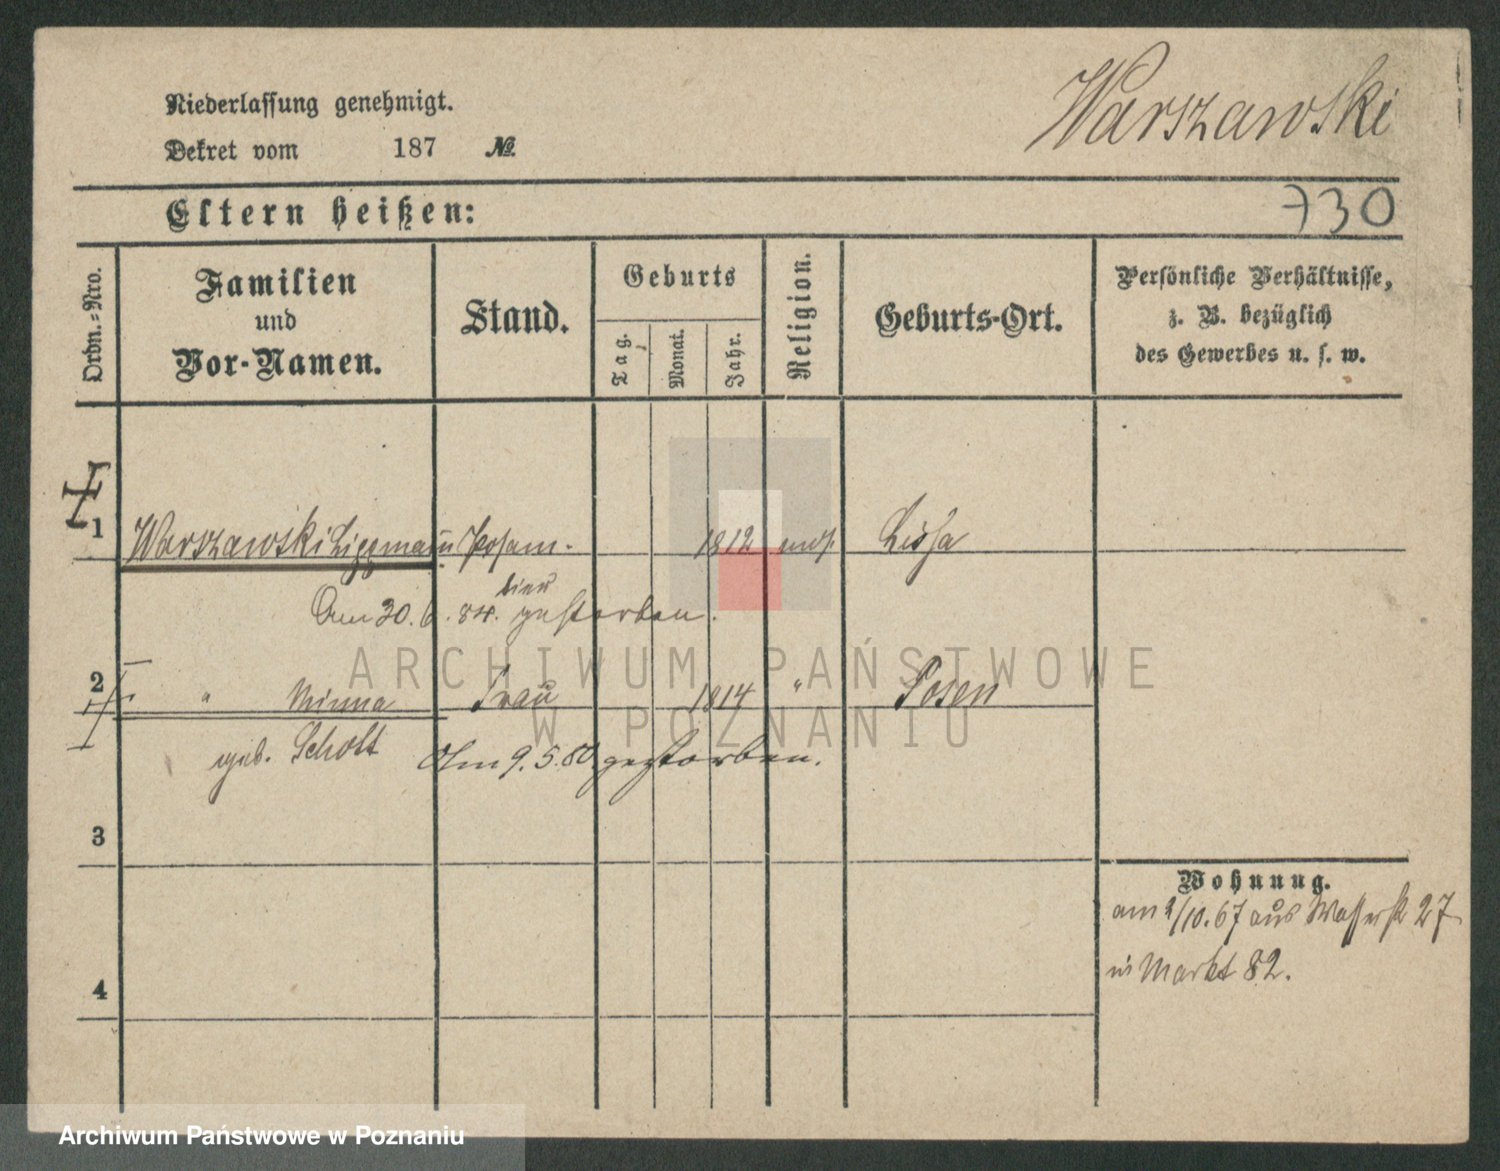 Warszawski
Niederlassung genehmigt.
Dekret vom 187 №.
Eltern heißen:
730
Ordn.-Nro.
Familien
und
Vor-Namen.
Stand.
Geburts
Tag.
Monat.
Jahr.
Religion.
Geburts-Ort.
Persönliche Verhältnisse,
z. B. bezüglich
des Gewerbes u. s. w.
1 Warszawski Lippmann Posam. 1812 mos. Lissa
hier
Am 30. 6. 84. gestorben.
2 " Minna Frau 1814 " Posen
geb. Schott Am 9. 5. 80. gestorben.
3
4
Wohnung.
am 2/10. 67 aus Wasserstr 27
in Markt 82.
ARCHIWUM PAŃSTWOWE
W POZNANIU
Archiwum Państwowe w Poznaniu